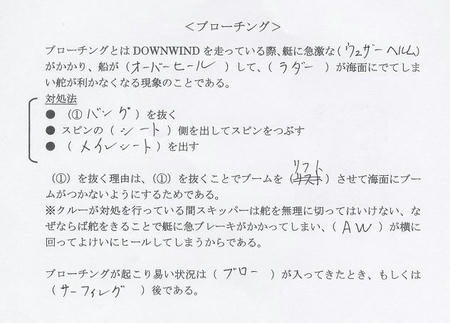 ＜ブローチング＞
ブローチングとは DOWNWIND を走っている際、艇に急激な（ウェザーヘルム）
がかかり、船が（オーバーヒール）して、（ラダー）が海面にでてしま
い舵が利かなくなる現象のことである。
対処法
● （① バング）を抜く
● スピンの（シート）側を出してスピンをつぶす
● （メインシート）を出す
リフト
（①）を抜く理由は、（①）を抜くことでブームを（）させて海面にブー
ムがつかないようにするためである。
※クルーが対処を行っている間スキッパーは舵を無理に切ってはいけない、な
ぜならば舵をきることで艇に急ブレーキがかかってしまい、（AW）が横に
回ってよけいにヒールしてしまうからである。
ブローチングが起こり易い状況は（ブロー）が入ってきたとき、もしくは
（サーフィング）後である。